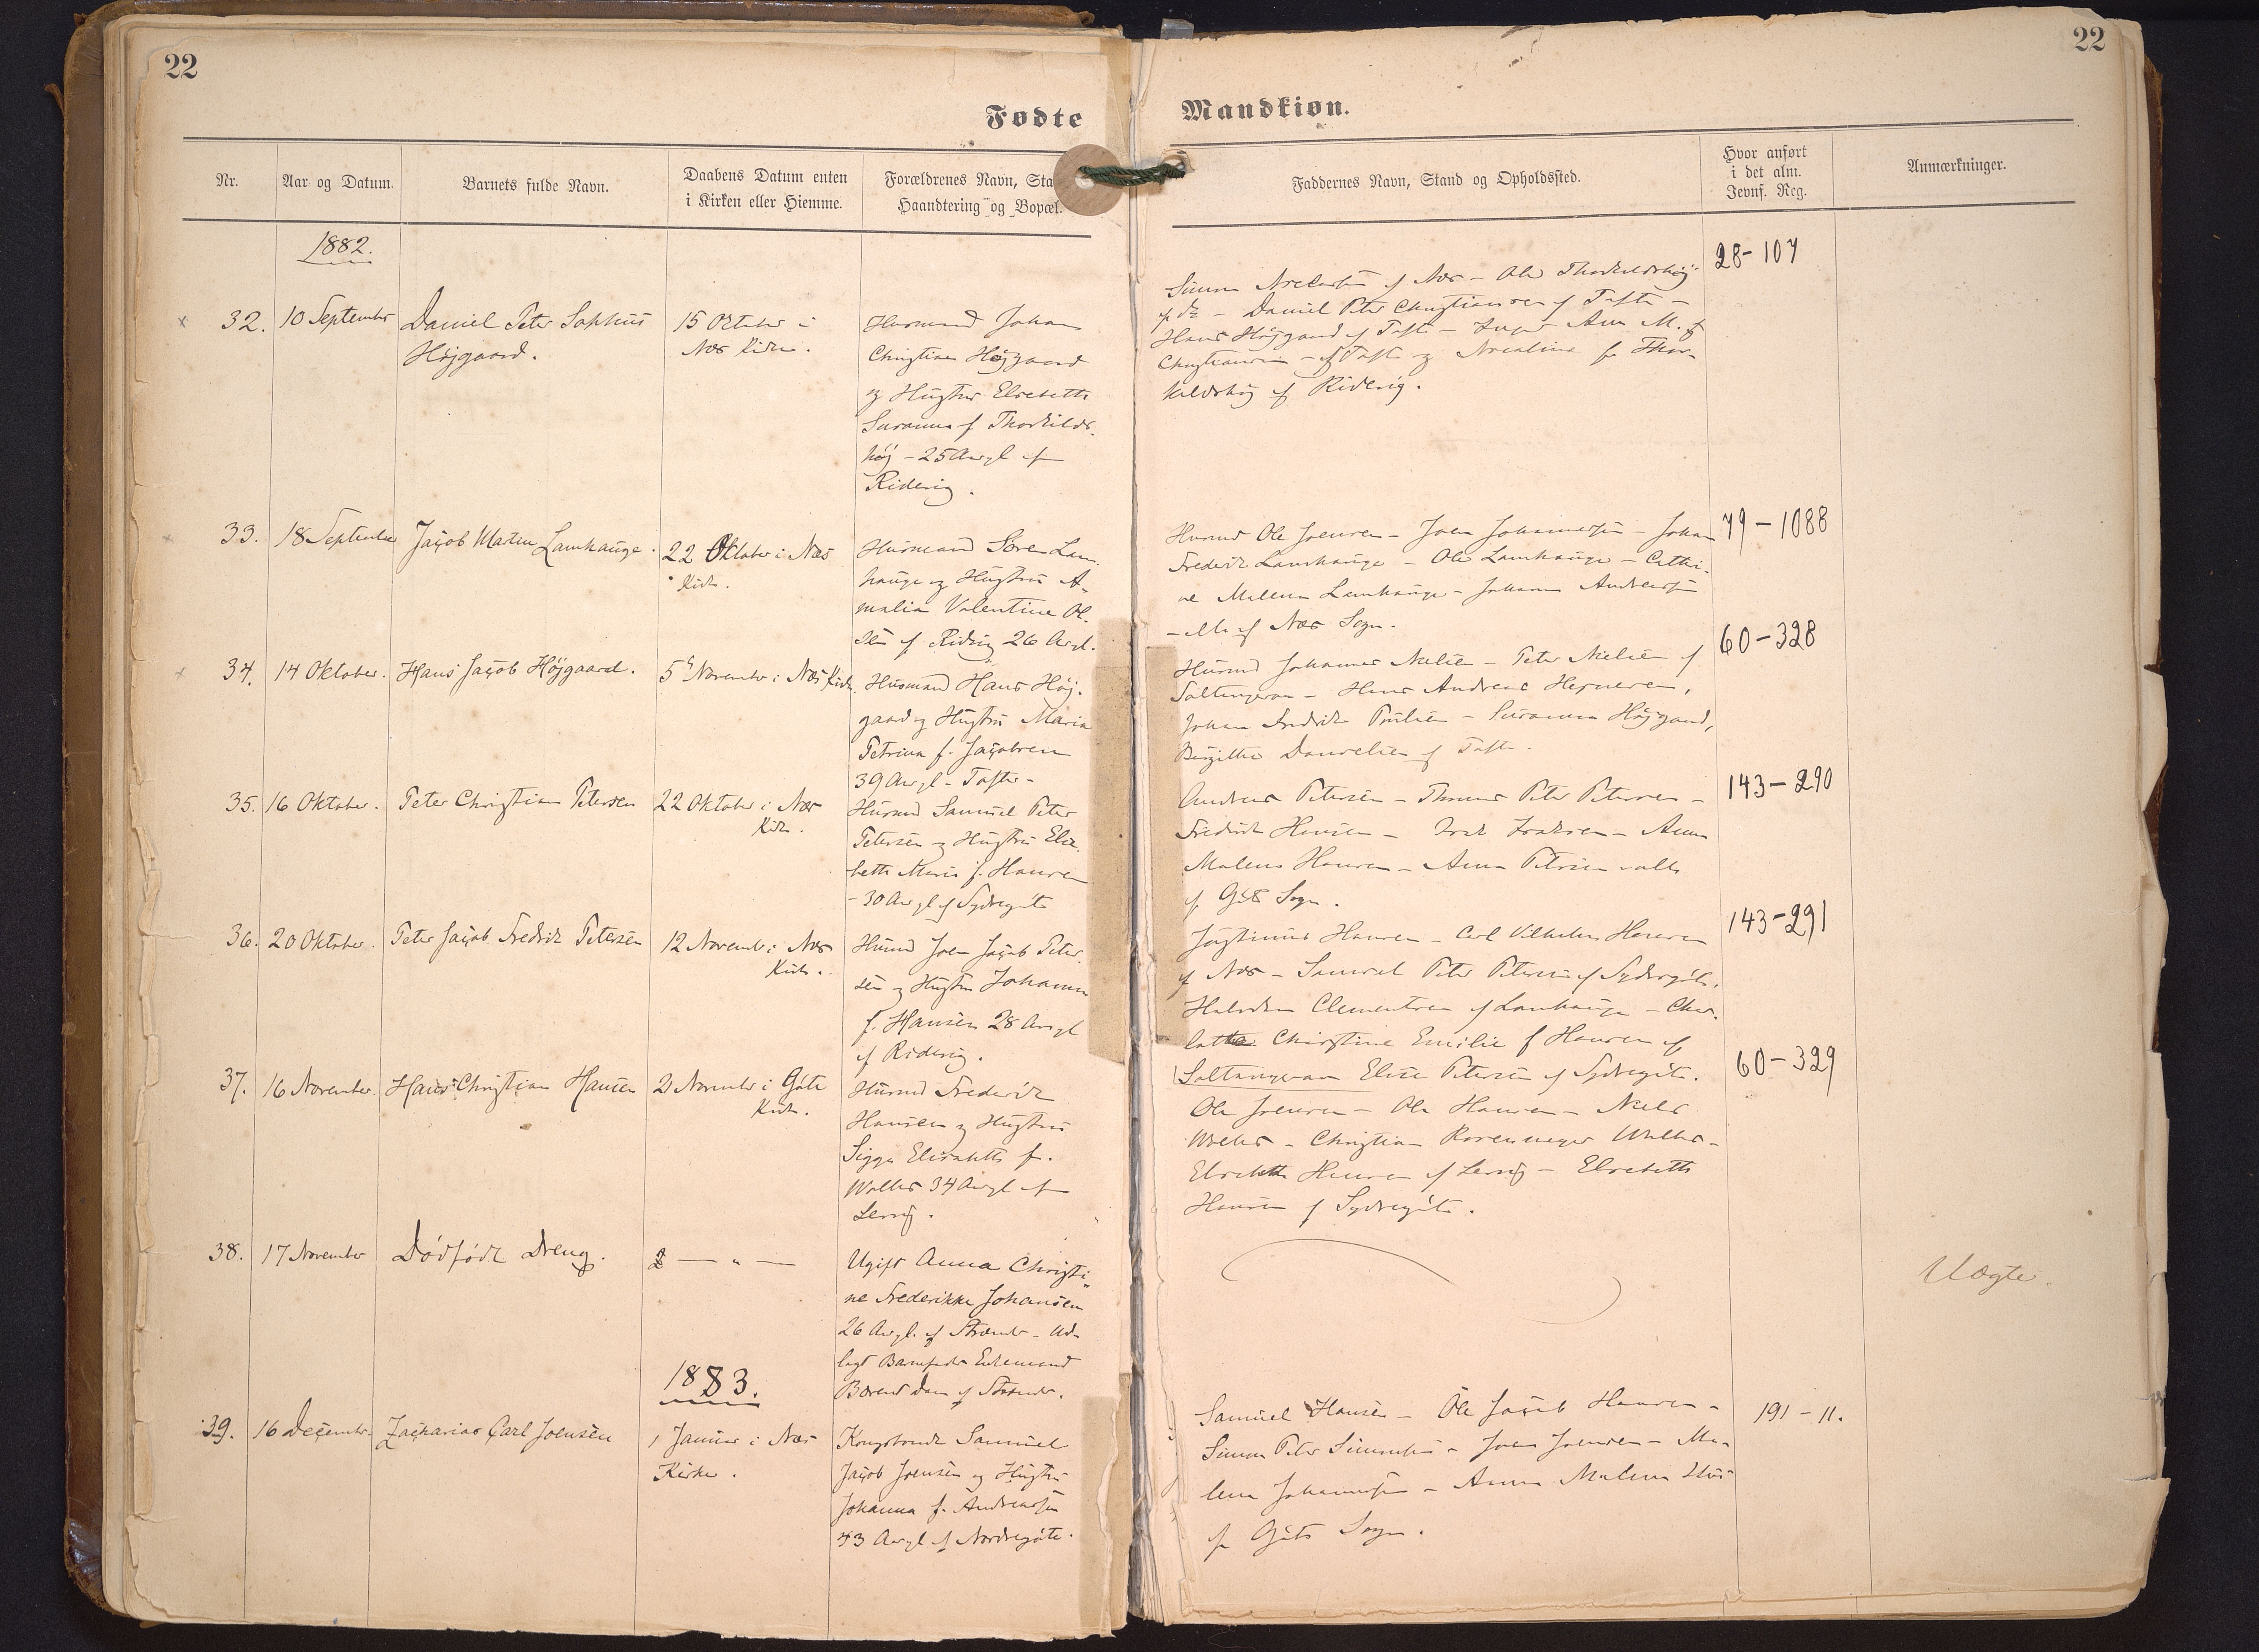 22
22
Fødte
Mandkiøn.
Nr.
Aar og Datum.
Barnets fulde Navn.
Daabens Datum enten
i Kirken eller Hiemme.
Forældrenes Navn, Sta
Haandtering og Bopæl.
Faddernes Navn, Stand og Opholdssted.
Hvor anført
i det alm.
Jevnf. Reg.
Anmærkninger.
1882.
32.
10 September
Daniel Peter Sophus
Højgaard.
15 Oktober i
Næs Kirke.
Husmand Johan
Christian Højgaard
og Hustru Elsebeth
Susanna f. Thorkilds-
høj - 25 Aar gl. af
Ridevig.
af Næs - Ole Thorkildshøj
af do - Daniel Peter Christiansen af Tofte -
Hans Højgaard af Tofte - Anna M. f.
Christiansen - af Tofte og f. Thor-
kildshøj af Ridevig.
28-107
33.
18 September
Jacob Martin Lamhauge.
22 Oktober i Næs
Kirke.
Husmand Sören Lam-
hauge og Hustru A-
malia Valentine Ol-
sen af Ridevig 26 Aar gl.
Husmd Ole Joensen - Joen Johannesen - Johan
Frederik Lamhauge - Ole Lamhauge - Cathri-
ne Malena Lamhauge - Johanna Andreasen
- alle af Næs Sogn.
79-1088
34.
14 Oktober.
Hans Jacob Højgaard.
5 November i Næs Kirke
Husmand Hans Høj-
gaard og Hustru Maria
Petrina f. Jacobsen
39 Aar gl - Tofte -
Husmd Johannes Nielsen - Peter Nielsen af
Saltangeraa - Hans Andreas
Johan Fredrik Poulsen - Susanna Højgaard,
Birgitte Danielsen af Tofte.
60-328
35.
16 Oktober.
Peter Christian Petersen
22 Oktober i Næs
Kirke.
Husmd Samuel Peter
Petersen og Hustru Else-
beth Maria f. Hansen
- 30 Aar gl af Sydregøte
Andreas Petersen - Thomas Peter Petersen -
Fredrik Hansen - Isak Isaksen - Anna
Malena Hansen - Anna Petersen - alle
af Gøte Sogn.
143-290
36.
20 Oktober.
Peter Jacob Fredrik Petersen
12 November i Næs
Kirke.
Husmd Joen Jacob Peter-
sen og Hustru Johanna
f. Hansen 28 Aar gl
af Ridevig.
Justinus Hansen - Carl Vilhelm Hansen
af Næs - Samuel Peter Petersen af Sydregøte.
Clementsen af Lamhauge - Char-
lotte Christine Emilie f Hansen af
Saltangeraa Elise Petersen af Sydregøte.
143-291
37.
16 November.
Hans Christian Hansen
21 November i Gøte
Kirke.
Husmd Frederik
Hansen og Hustru
Sigga Elisabeth f.
Wolles 34 Aar gl af
Lervig.
Ole Joensen - Ole Hansen - Niels
Wolles - Christian Rosenmeyer Wolles -
Elsebeth Hansen af Lervig - Elsebeth
Hansen af Sydregøte.
60-329
38.
17 November
Dödfödt Dreng.
— „ —
Ugift Anna Christi-
ne Frederikke Johansen
26 Aar gl. af Strænder - Ud-
lagt Barnefader Enkemand
af Strænder.
Uægte.
1883.
39.
16 December.
Zacharias Carl Joensen
1 Januar i Næs
Kirke.
Kongsbonde Samuel
Jacob Joensen og Hustru
Johanna f. Andreasen
43 Aar gl af Nordregøte.
Samuel Hansen - Ole Jacob Hansen -
Simon Peter Simonsen - Joen Joensen - Ma-
lena Johannesen - Anna Malena
af Gøte Sogn.
191-11.